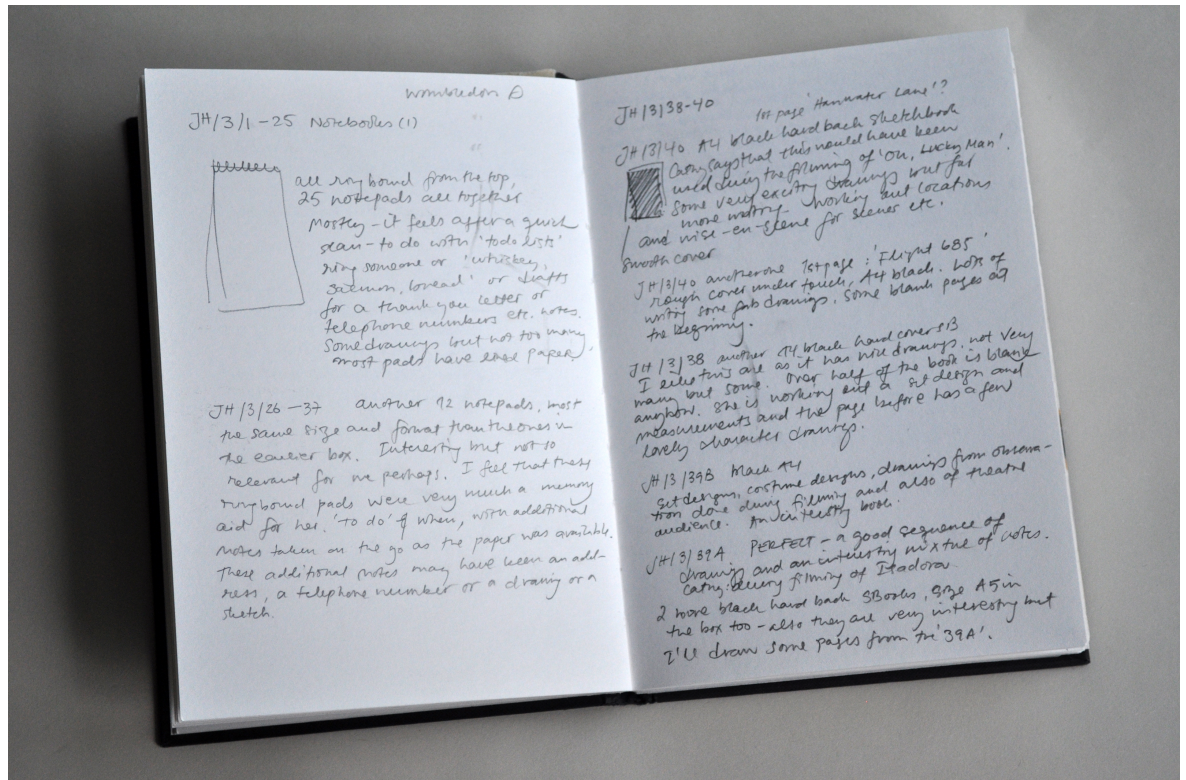 Wombledon
JH/3/1-25 Notebooks (1)
all ringbound from the top,
25 notepads all together
mostly - it feels after a quick
scan - to do with 'to do lists'
ring someone or 'whiskey,
salmon, bread' or drafts
for a thank you letter or
telephone numbers etc. notes.
Some drawings but not too many,
most pads have lined paper.
JH/3/26-37 another 12 notepads, most
the same size and format than the ones in
the earlier box. Interesting but not so
relevant for me perhaps. I feel that these
ringbound pads were very much a memory
aid for her. 'to do' & when, with additional
notes taken on the go as the paper was available.
These additional notes may have been an add-
ress, a telephone number or a drawing or a
sketch.
JH/3/38-40
1st page 'Hanwater Lane'?
JH/3/40 A4 black hard back sketchbook
Cathy says that this would have been
used during the filming of 'Oh, Lucky Man'.
Some very exciting drawings but far
more writing. Working out locations
and mise-en-scene for scenes etc.
smooth cover
JH/3/40 another one 1st page: 'Flight 685'
rough cover under touch, A4 black. Lots of
writing some fab drawings, some blank pages at
the beginning.
JH/3/38 another A4 black hard cover SB
I like this as it has nice drawings, not very
many but some. Over half of the book is blank
anyhow. She is working out a set design and
measurements and the page before has a few
lovely character drawings.
JH/3/39B black A4
set designs, costume designs, drawings from observa-
tion done during filming and also of theatre
audience. An interesting book.
JH/3/39A. PERFECT - a good sequence of
drawings and an interesting mixture of notes.
Cathy: during filming of Isadora
2 more black hard back SBooks, size A5 in
the box too - also they are very interesting but
I'll draw some pages from the '39A'.